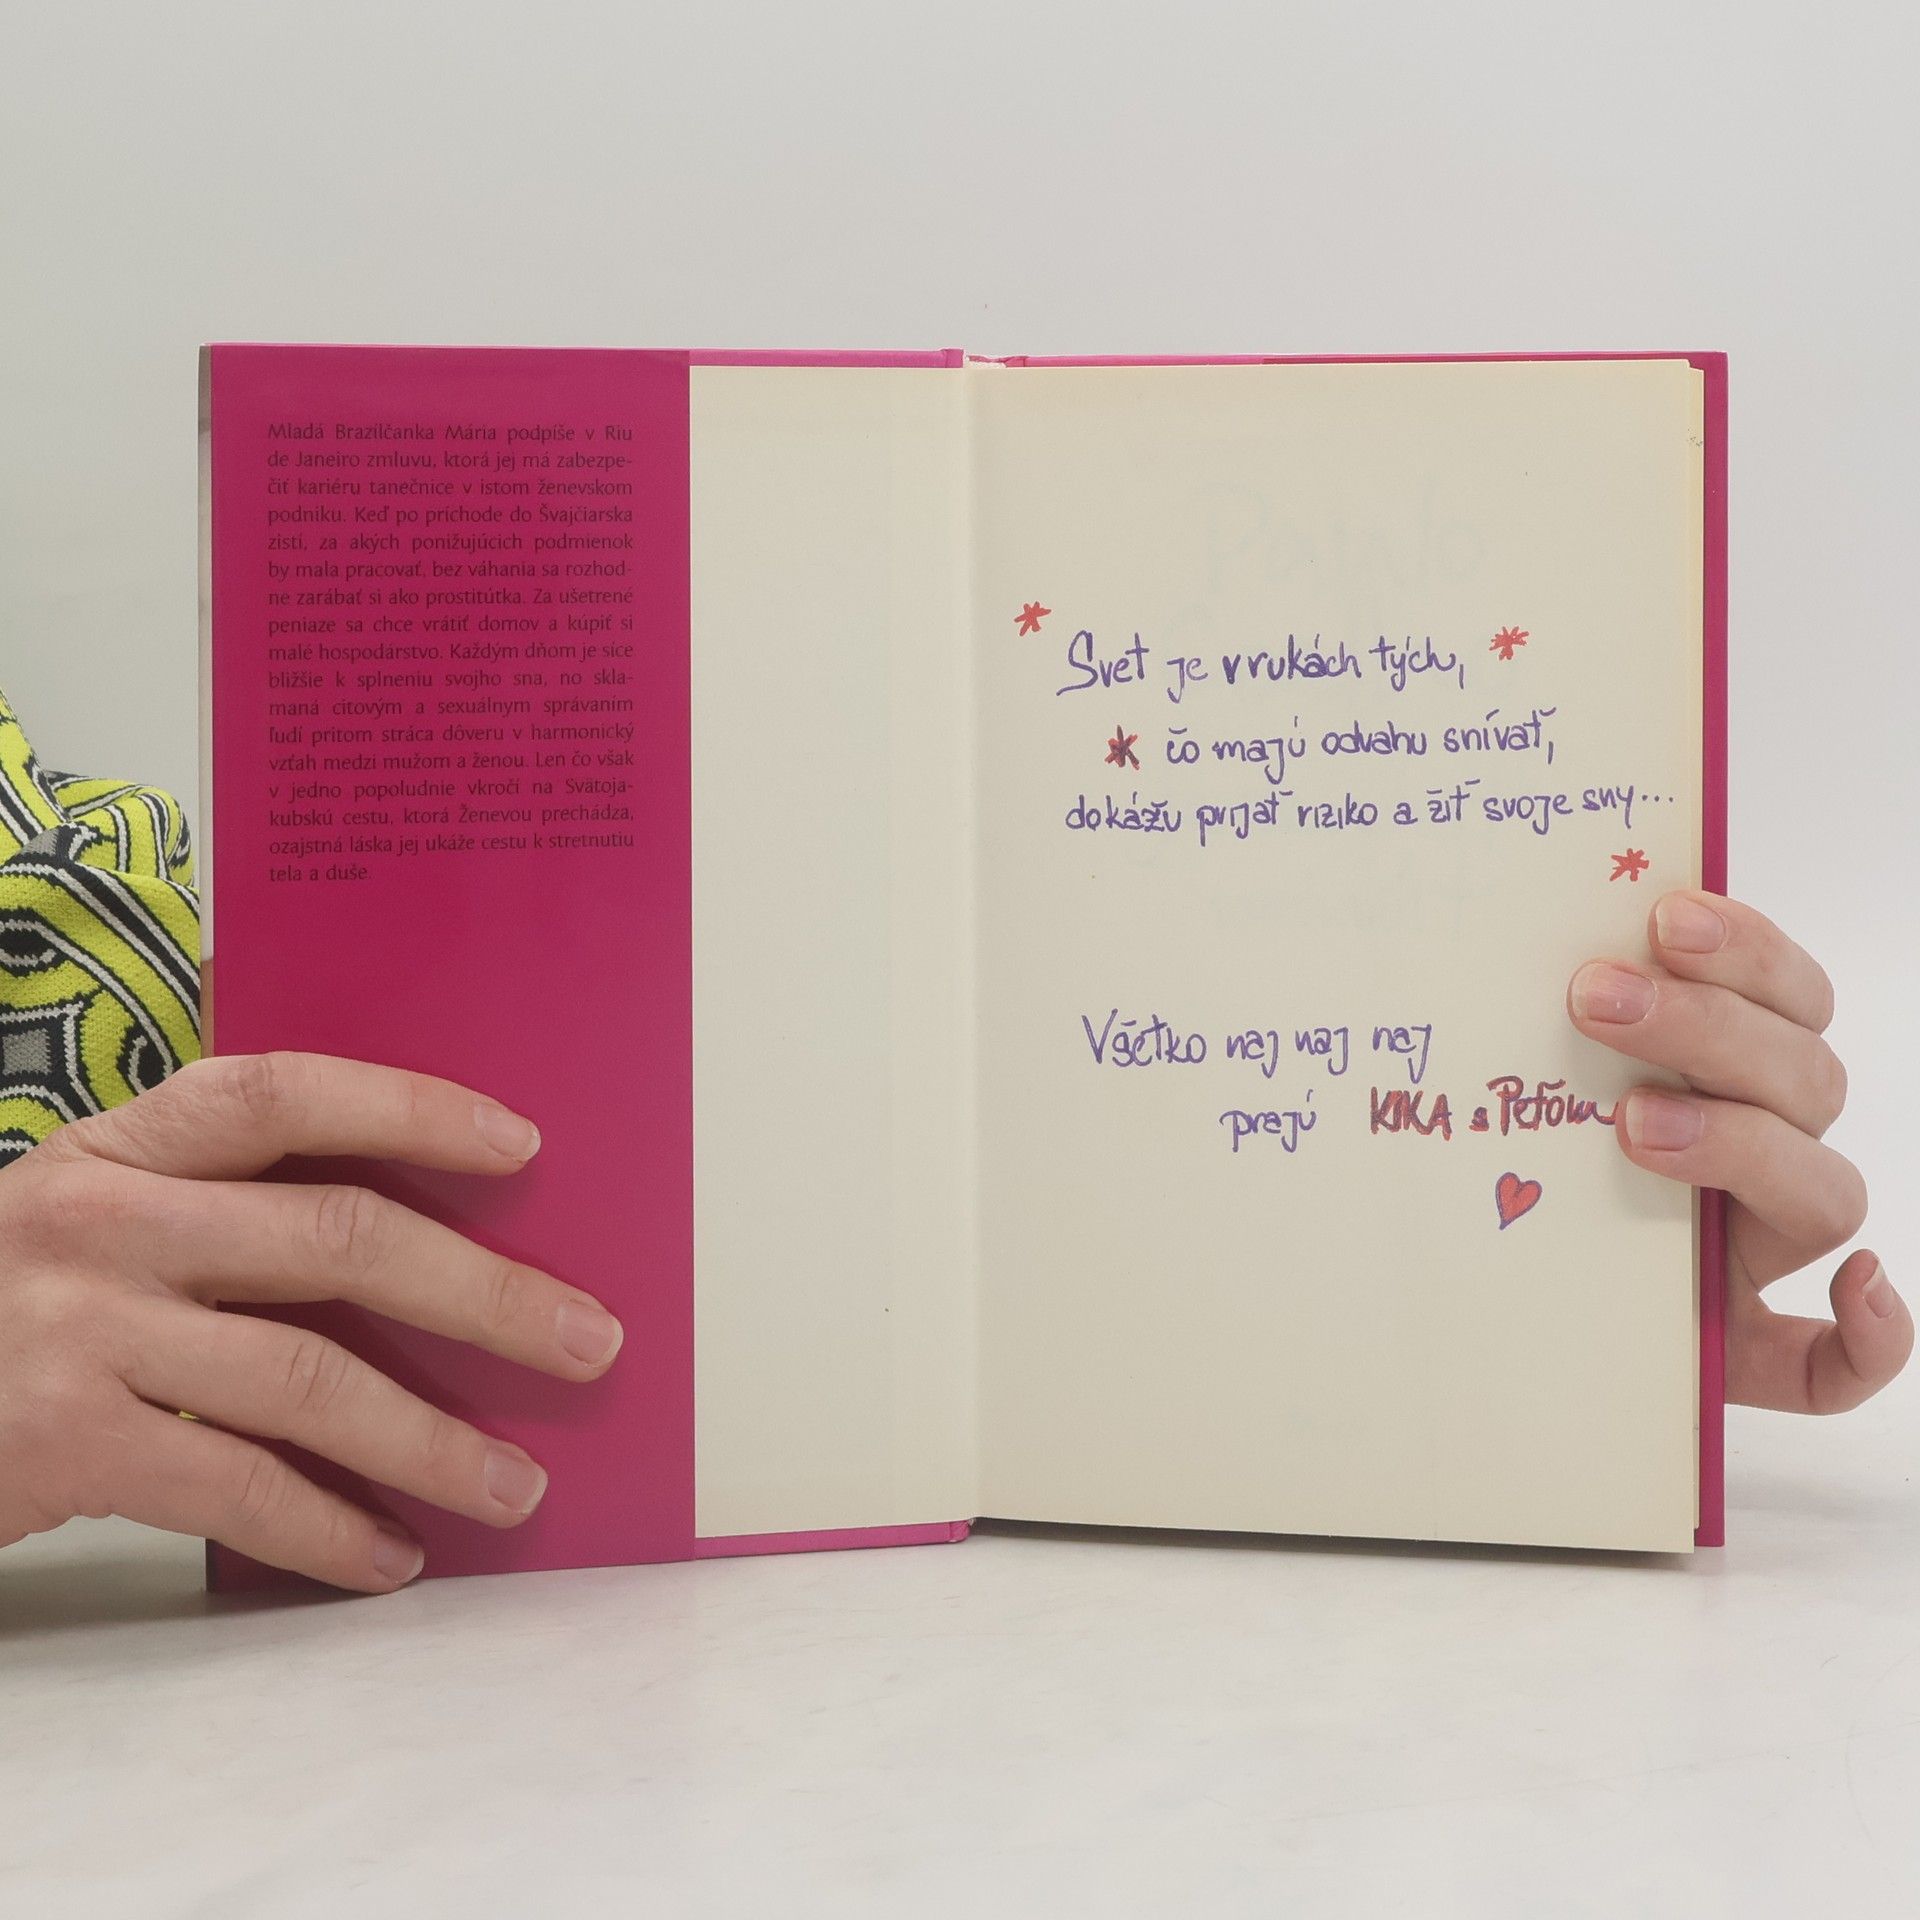 Mladá Brazílčanka Mária podpíše v Riu
de Janeiro zmluvu, ktorá jej má zabezpe-
čiť kariéru tanečnice v istom ženevskom
podniku. Keď po príchode do Švajčiarska
zistí, za akých ponižujúcich podmienok
by mala pracovať, bez váhania sa rozhod-
ne zarábať si ako prostitútka. Za ušetrené
peniaze sa chce vrátiť domov a kúpiť si
malé hospodárstvo. Každým dňom je síce
bližšie k splneniu svojho sna, no skla-
maná citovým a sexuálnym správaním
ľudí pritom stráca dôveru v harmonický
vzťah medzi mužom a ženou. Len čo však
v jedno popoludnie vkročí na Svätoja-
kubskú cestu, ktorá Ženevou prechádza,
ozajstná láska jej ukáže cestu k stretnutiu
tela a duše.
Svet je v rukách tých,
čo majú odvahu snívať,
dokážu prijať riziko a žiť svoje sny...
Všetko naj naj naj
prajú KIKA s Peťom